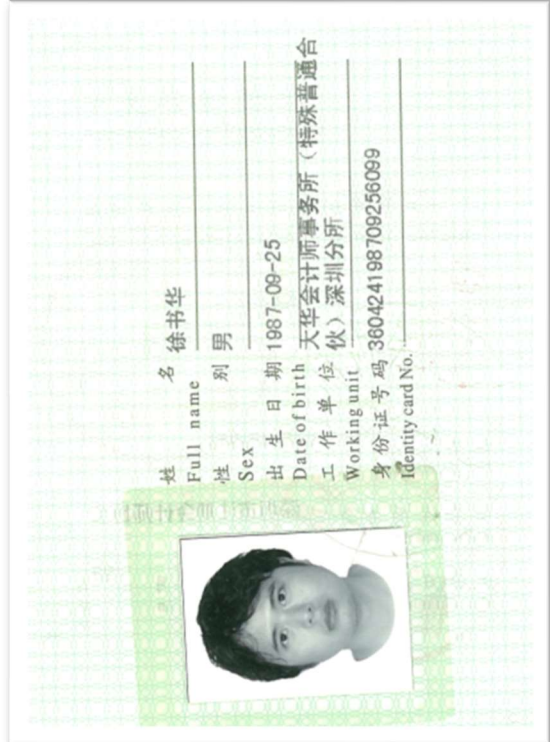 姓 名 徐书华
Full name
性 别 男
Sex
出 生 日 期 1987-09-25
Date of birth
工 作 单 位 天华会计师事务所（特殊普通合
Working unit 伙）深圳分所
身 份 证 号 码 360424198709256099
Identity card No.